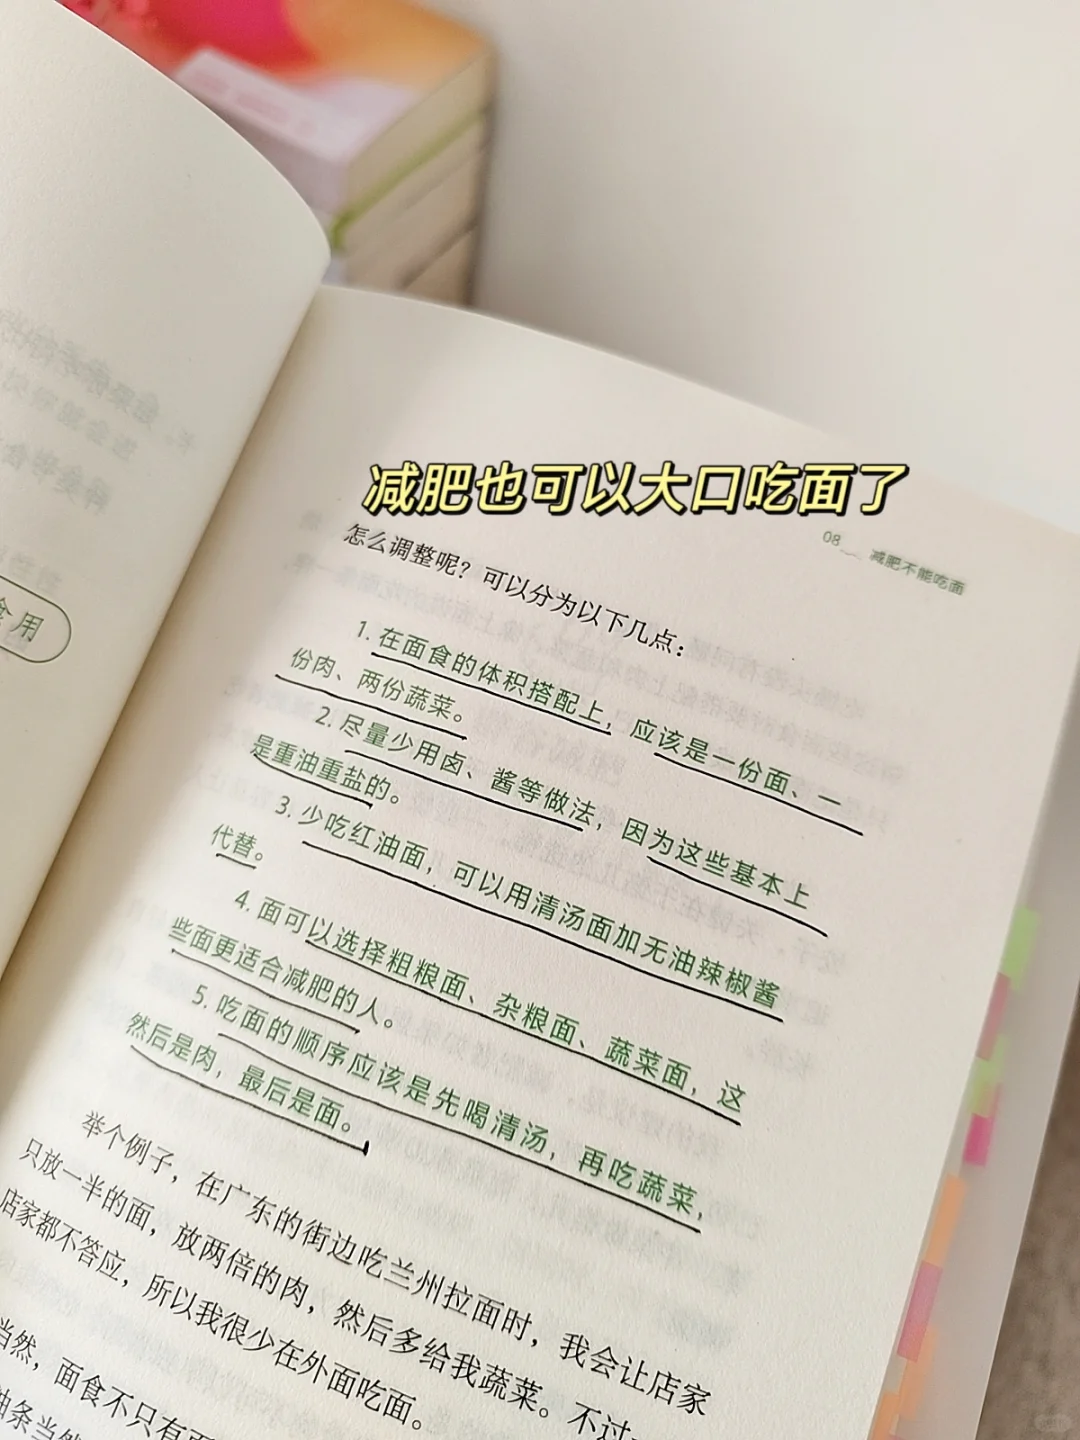 减肥也可以大口吃面了
08__ 减肥不能吃面
怎么调整呢？可以分为以下几点：
1. 在面食的体积搭配上，应该是一份面、一
份肉、两份蔬菜。
2. 尽量少用卤、酱等做法，因为这些基本上
是重油重盐的。
3. 少吃红油面，可以用清汤面加无油辣椒酱
代替。
4. 面可以选择粗粮面、杂粮面、蔬菜面，这
些面更适合减肥的人。
5. 吃面的顺序应该是先喝清汤，再吃蔬菜，
然后是肉，最后是面。
举个例子，在广东的街边吃兰州拉面时，我会让店家
只放一半的面，放两倍的肉，然后多给我蔬菜。不过
店家都不答应，所以我很少在外面吃面。
当然，面食不只有面
油条当然
食用